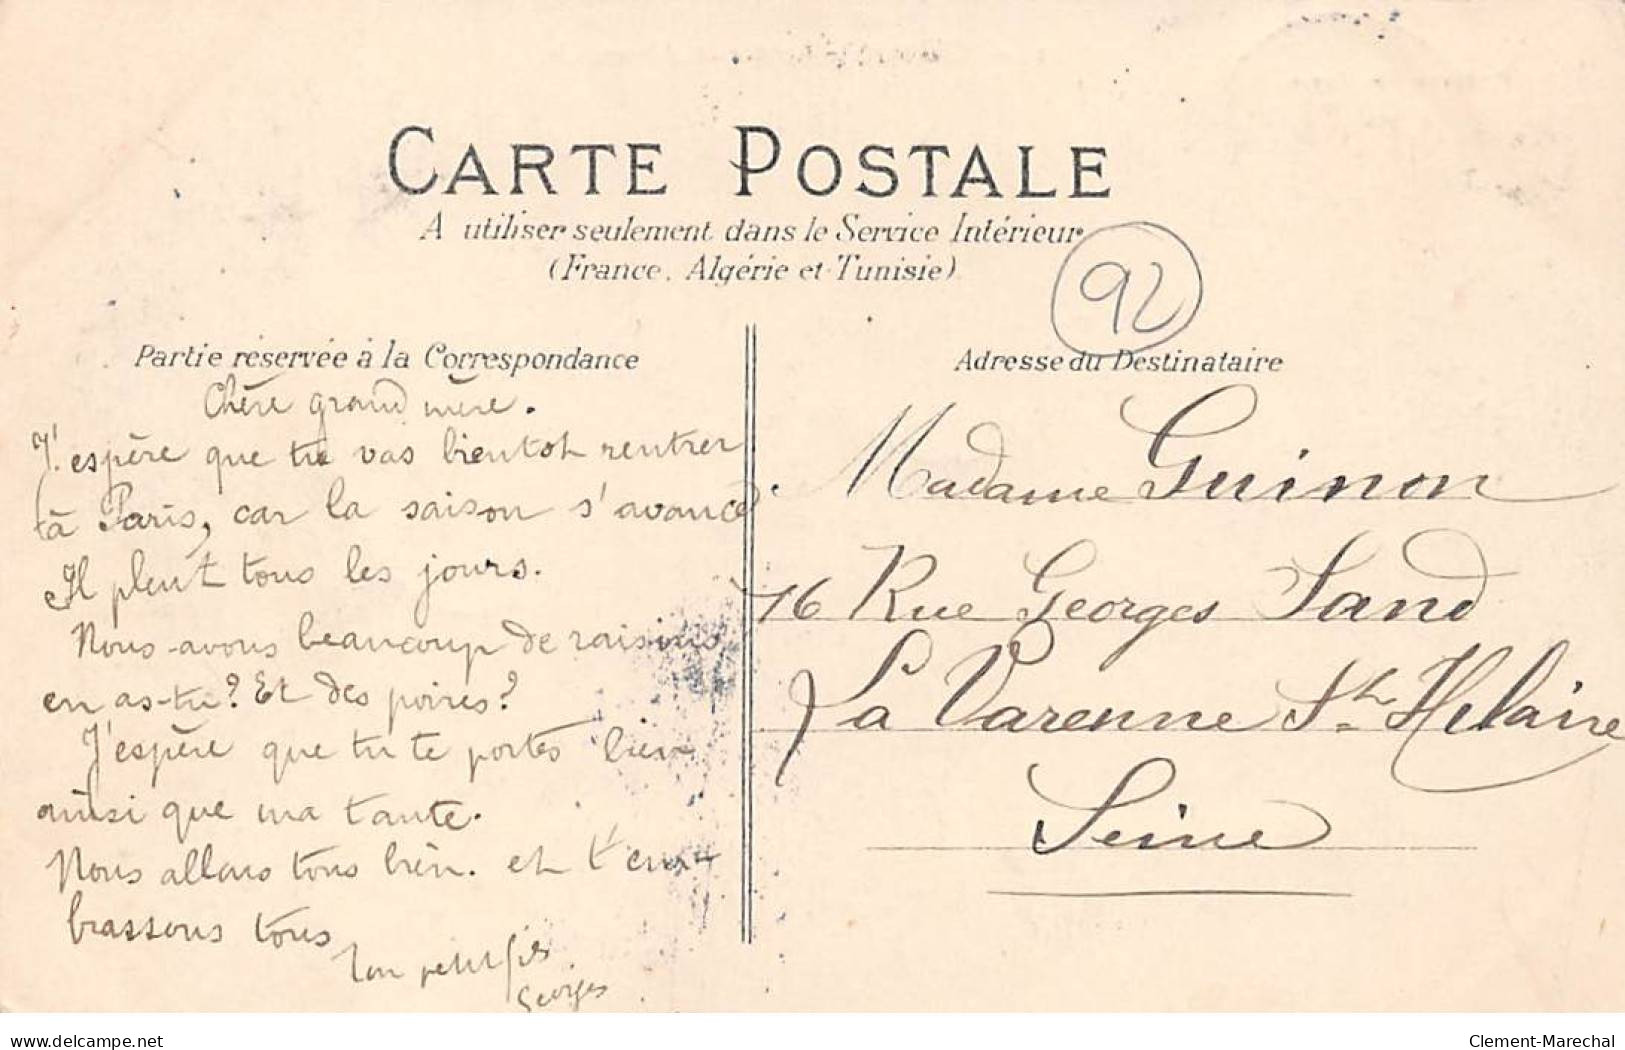 CARTE POSTALE
A utiliser seulement dans le Service Intérieur
(France, Algérie et Tunisie)
92
Partie réservée à la Correspondance
Chère grand mère.
J'espère que tu vas bientot rentrer
à Paris, car la saison s'avance
Il pleut tous les jours.
Nous avons beaucoup de raisins
en as-tu? Et des poires?
J'espère que tu te portes bien
ainsi que ma tante.
Nous allons tous bien. et t'em-
brassons tous
Ton petit fils
Georges
Adresse du Destinataire
Madame Guinon
16 Rue Georges Sand
La Varenne St Hilaire
Seine
delcampe.net
Clement-Marechal